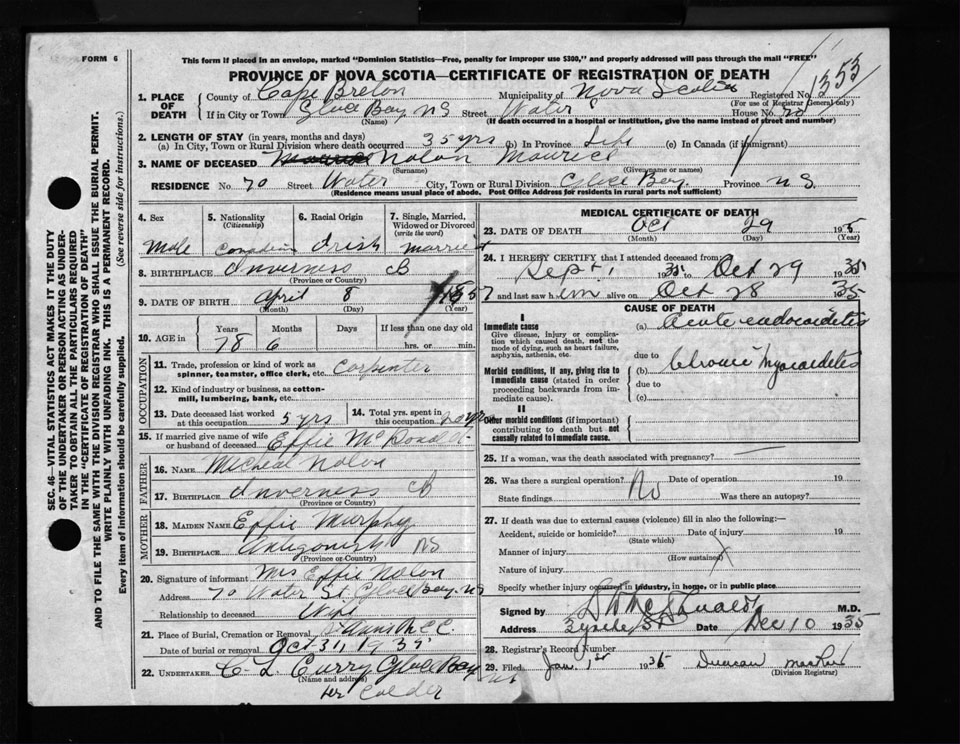 FORM 6
This form if placed in an envelope, marked "Dominion Statistics—Free, penalty for improper use $300," and properly addressed will pass through the mail "FREE"
PROVINCE OF NOVA SCOTIA—CERTIFICATE OF REGISTRATION OF DEATH
1353
1. PLACE OF DEATH County of Cape Breton Municipality of Nova Scotia Registered No.
(For use of Registrar General only)
If in City or Town Glace Bay NS Street Water House No. 70
(Name) (If death occurred in a hospital or institution, give the name instead of street and number)
2. LENGTH OF STAY (in years, months and days)
(a) In City, Town or Rural Division where death occurred 35 yrs (b) In Province Life (c) In Canada (if immigrant)
3. NAME OF DECEASED Maurice Nolan Maurice
(Surname) (Given name or names)
RESIDENCE No. 70 Street Water City, Town or Rural Division Glace Bay Province N S.
(Residence means usual place of abode. Post Office Address for residents in rural parts not sufficient)
4. Sex 5. Nationality (Citizenship) 6. Racial Origin 7. Single, Married, Widowed or Divorced (write the word)
Male Canadian Irish Married
8. BIRTHPLACE Inverness CB
(Province or Country)
9. DATE OF BIRTH April 8 1857
(Month) (Day) (Year)
10. AGE in Years Months Days If less than one day old
78 6 hrs. or min.
OCCUPATION
11. Trade, profession or kind of work as spinner, teamster, office clerk, etc. Carpenter
12. Kind of industry or business, as cotton-mill, lumbering, bank, etc.
13. Date deceased last worked at this occupation 5 yrs 14. Total yrs. spent in this occupation
15. If married give name of wife or husband of deceased Effie McDonald
FATHER
16. NAME Micheal Nolan
17. BIRTHPLACE Inverness CB
(Province or Country)
MOTHER
18. MAIDEN NAME Effie Murphy
19. BIRTHPLACE Antigonish NS
(Province or Country)
20. Signature of informant Mrs Effie Nolan
Address 70 Water St Glace Bay. NS
Relationship to deceased Wife
21. Place of Burial, Cremation or Removal
Date of burial or removal Oct 31, 1935
22. UNDERTAKER C. L. Curry Glace Bay
(Name and address)
per Calder
MEDICAL CERTIFICATE OF DEATH
23. DATE OF DEATH Oct 29 1935
(Month) (Day) (Year)
24. I HEREBY CERTIFY that I attended deceased from:
Sept 1 1935 to Oct 29 1935
and last saw him alive on Oct 28 1935
CAUSE OF DEATH
I
Immediate cause (a) Acute endocarditis
Give disease, injury or complication which caused death, not the mode of dying, such as heart failure, asphyxia, asthenia, etc.
due to
Morbid conditions, if any, giving rise to immediate cause (stated in order proceeding backwards from immediate cause). (b) Chronic Myocarditis
due to
(c)
II
Other morbid conditions (if important) contributing to death but not causally related to immediate cause.
25. If a woman, was the death associated with pregnancy?
26. Was there a surgical operation? No Date of operation 19
State findings Was there an autopsy?
27. If death was due to external causes (violence) fill in also the following:—
Accident, suicide or homicide? Date of injury 19
(State which)
Manner of injury
(How sustained)
Nature of injury
Specify whether injury occurred in industry, in home, or in public place
Signed by M.D.
Address Date Dec 10 1935
28. Registrar's Record Number
29. Filed Jan. 1st 1936 Duncan
(Division Registrar)
SEC. 46—VITAL STATISTICS ACT MAKES IT THE DUTY
OF THE UNDERTAKER OR PERSON ACTING AS UNDER-
TAKER TO OBTAIN ALL THE PARTICULARS REQUIRED
IN THE "CERTIFICATE OF REGISTRATION OF DEATH"
AND TO FILE THE SAME WITH THE DIVISION REGISTRAR WHO SHALL ISSUE THE BURIAL PERMIT.
WRITE PLAINLY WITH UNFADING INK. THIS IS A PERMANENT RECORD.
Every item of information should be carefully supplied. (See reverse side for instructions.)